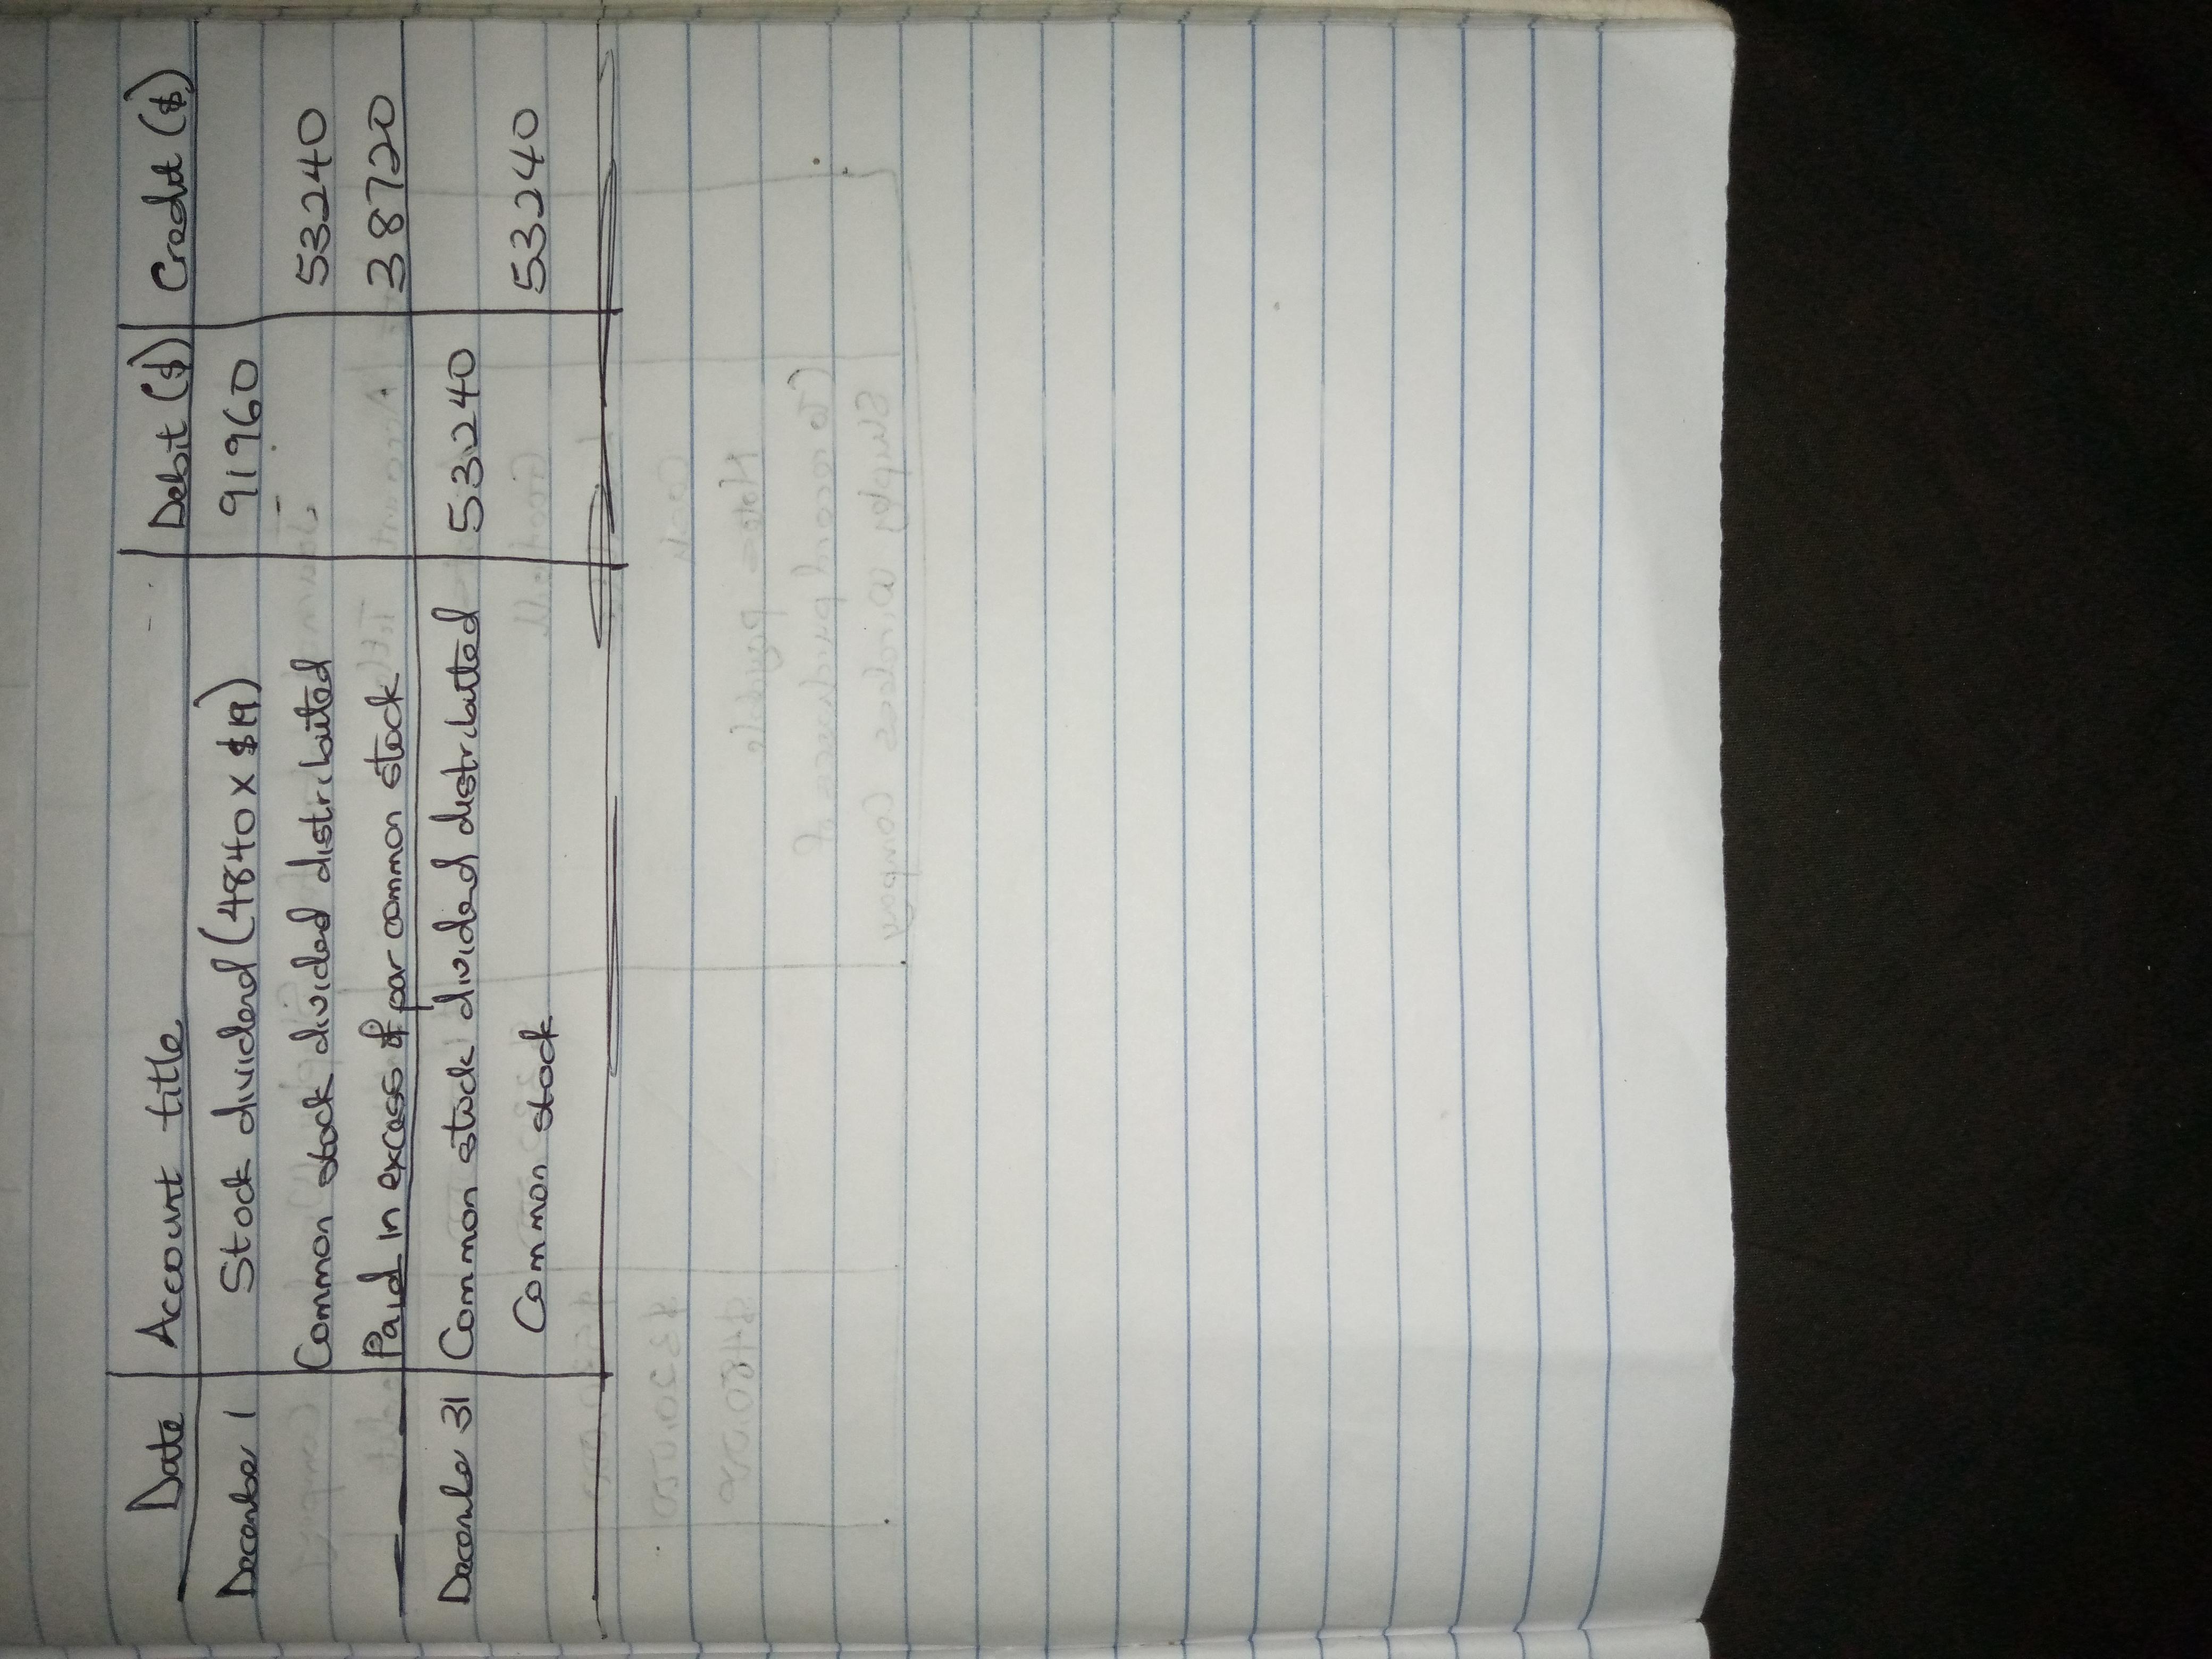 Date Account title Debit ($) Credit ($)
December 1 Stock dividend (4840 x $19) 91960
Common stock divided distributed 53240
Paid in excess of par common stock 38720
December 31 Common stock divided distributed 53240
Common stock 53240